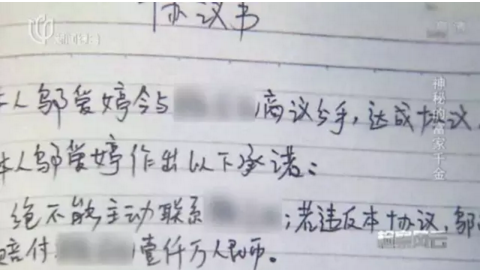 协议书
本人邬爱婷今与 商议分手，达成协议
本人邬爱婷作出以下承诺：
绝不能主动联系 ；若违反本协议，邬
赔付 壹仟万人民币。
神秘的富家千金